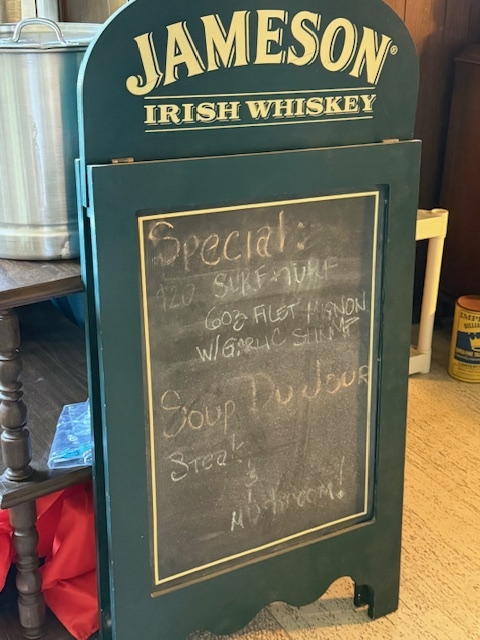 JAMESON®
IRISH WHISKEY
Special:
$20 SURF & TURF
6oz FILET MIGNON
W/GARLIC SHRIMP
Soup Du Jour
Steak
&
Mushroom!
IMP